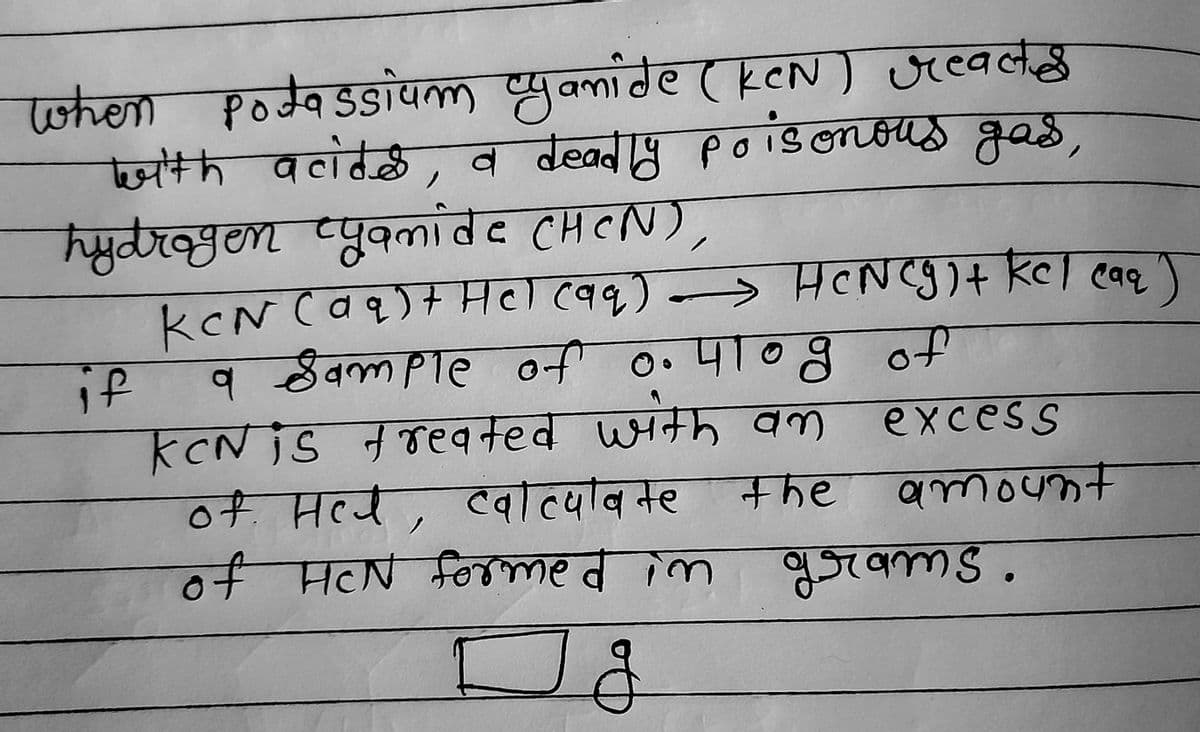 when potassium cyanide (KCN) reacts
with acids, a deadly poisonous gas,
hydrogen cyanide (HCN),
KCN (aq) + HCl (aq) → HCN(g) + KCl (aq)
if a sample of 0.410g of
KCN is treated with an excess
of HCl, calculate the amount
of HCN formed in grams.
g